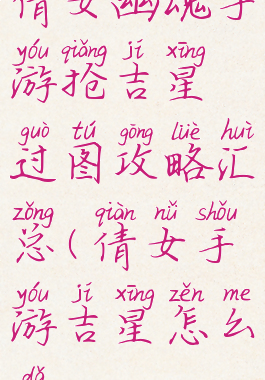 倩女幽魂手
yóu qiǎng jí xīng
游抢吉星
guò tú gōng lüè huì
过图攻略汇
zǒng qiàn nǚ shǒu
总(倩女手
yóu jí xīng zěn me
游吉星怎么
dǎ